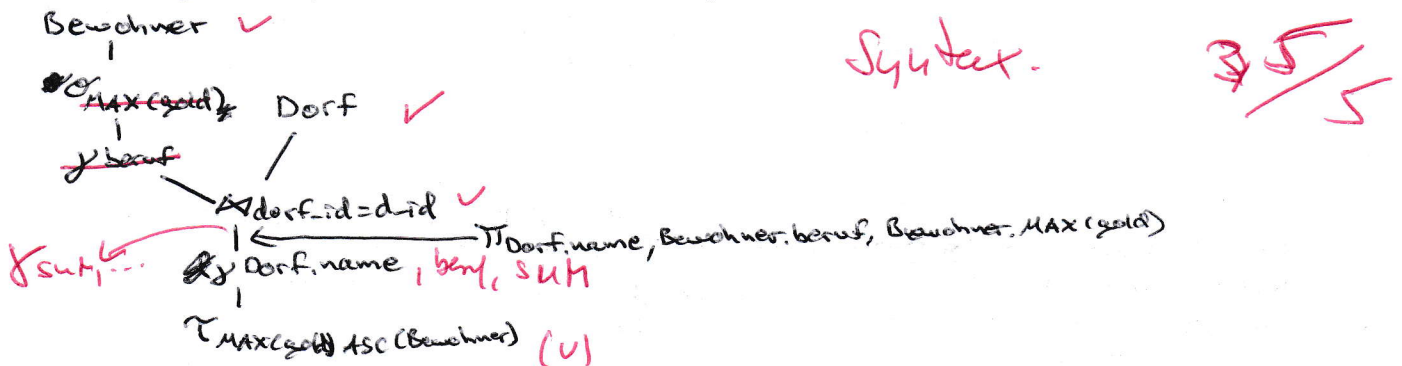 Bewohner ✓
Syntax. 5/5
σ MAX(gold)
Dorf ✓
γ beruf
⋈ dorf_id=d_id ✓
π Dorf.name, Bewohner.beruf, Bewohner.MAX(gold)
γ SUM, ...
γ Dorf.name, beruf, SUM
τ MAX(gold) ASC (Bewohner) (✓)